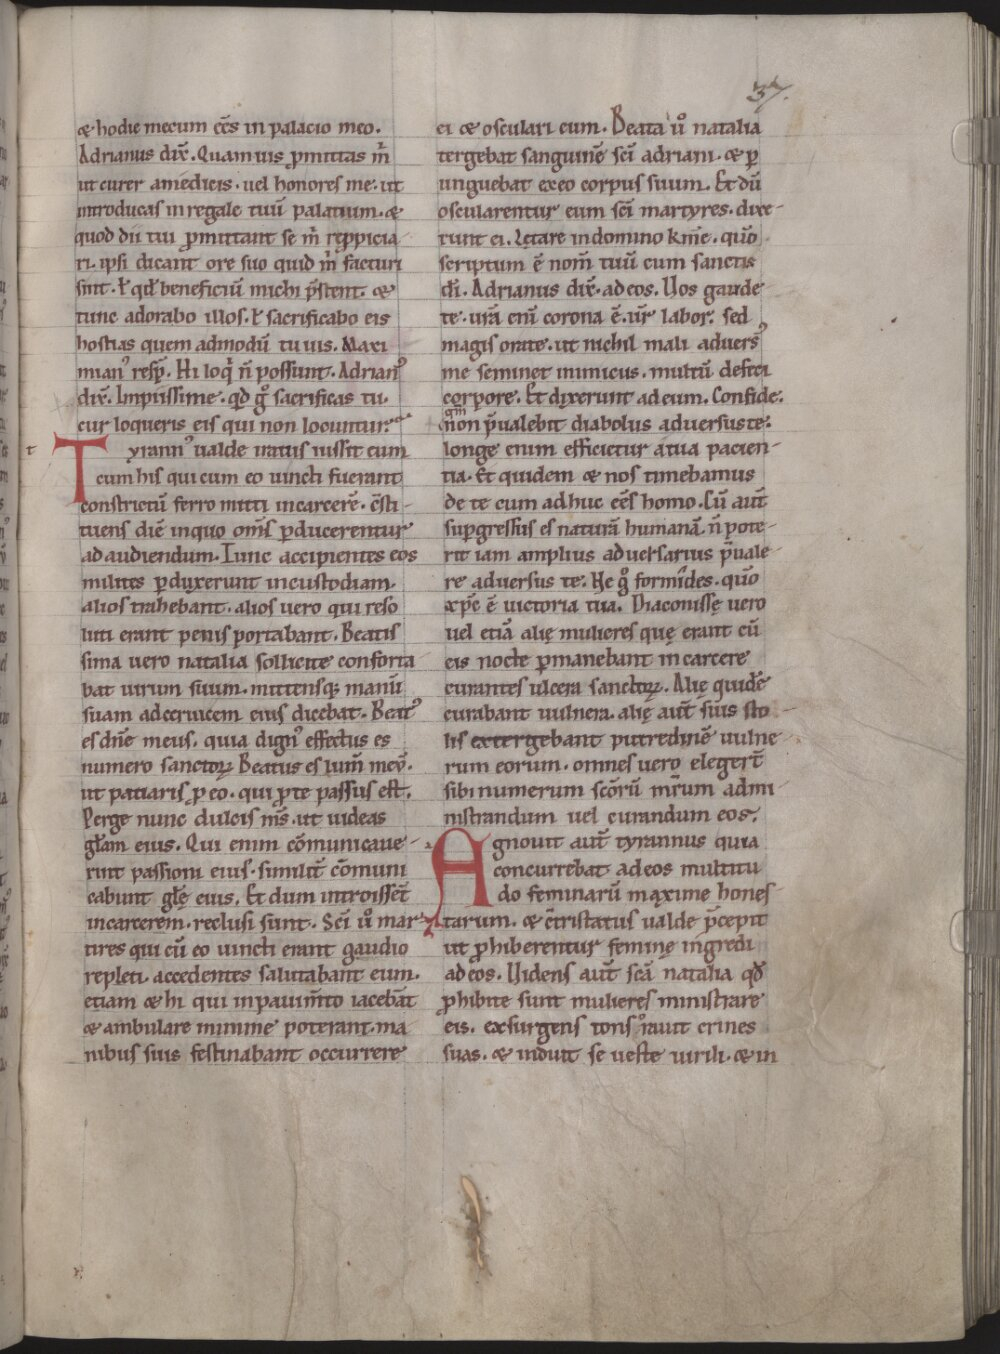 37.
& hodie mecum eēs in palacio meo.
Adrianus dix̄. Quamuis ꝓmittas m̄
ut curer a medicis. uel honores me. ut
introducas in regale tuū palatium. &
quod dii tui ꝓmittant se m̄ rep̱picia
ri. ipsi dicant ore suo quid m̄ facturi
sint. ł qd̄ beneficiū michi p̄stent. &
tunc adorabo illos. ł sacrificabo eis
hostias quem admodū tu uis. Maxi
mianꝰ resp̄. Hi loq̄ n̄ possunt. Adrianꝰ
dix̄. Impiissime. qd̄ gͦ sacrificas tu.
cur loqueris eis qui non locuntur.
t
Tyrannꝰ ualde iratus iussit eum
cum his qui cum eo uincti fuerant
constrictū ferro mitti in carcerē. c̄sti-
tuens diē in quo om̄s ꝓducerentur
ad audiendum. Tunc accipientes eos
milites ꝑduxerunt in custodiam.
alios trahebant. alios uero qui reso
luti erant penis portabant. Beatis
sima uero natalia sollicite conforta
bat uirum suum. mittensq; manū
suam ad ceruicem eius dicebat. Beatꝰ
es dn̄e meus. quia dignꝰ effectus es
numero sanctoꝝ Beatus es lum̄ meū.
ut patiaris ꝓ eo. qui ꝓ te passus est.
Perge nunc dulcis m̄s. ut uideas
gl̄am eius. Qui enim cōmunicaue-
rint passioni eius. similit̄ cōmuni
cabunt gl̄ę eius. Et dum introisset̄
in carcerem. reclusi sunt. Sci ů mar
tires qui cū eo uincti erant gaudio
repleti. accedentes salutabant eum.
etiam & hi qui in pauim̄to iacebāt
& ambulare minime poterant. ma
nibus suis festinabant occurrere
ei & osculari eum. Beata ů natalia
tergebat sanguinē sc̄i adriani. & ꝑ
unguebat ex eo corpus suum. Et dū
oscularentur eum sc̄i martyres. dixe-
runt ei. Lętare in domino kr̄me. quō
scriptum ē nom̄ tuū cum sanctis
dī. Adrianus dix̄. ad eos. Uos gaude-
te. urā enī corona ē. ur̄ labor. sed
magis orate. ut nichil mali aduersꝰ
me seminet inimicus. multū defeci
corpore. Et dyxerunt ad eum. Confide.
qm̄
non p̄ualebit diabolus aduersus te.
longe enim efficietur a tua pacien-
tia. Et quidem & nos timebamus
de te cum adhuc eēs homo. Cū aut̄
sup̱gressus es naturā humanā. n̄ pote-
rit iam amplius aduersarius p̄uale-
re aduersus te. Ne gͦ formides. quō
xp̄e ē uictoria tua. Diaconissę uero
uel etiā alię mulieres quę erant cū
eis nocte ꝑmanebant in carcere
curantes ulcera sanctoꝝ. Alię quidē
curabant uulnera. alię aut̄ suis sto-
lis extergebant putredinē uulne-
rum eorum. omnes uero elegert̄
sibi numerum sc̄orū mr̄um admi-
nistrandum uel curandum eos.
Agnouit aut̄ tyrannus quia
concurrebat ad eos multitu
do feminarū maxime hones-
tarum. & c̄tristatus ualde p̄cepit
ut ꝓhiberentur feminę ingredi
ad eos. Uidens aut̄ sc̄a natalia qd̄
ꝓhibite sunt mulieres ministrare
eis. exsurgens tonsorauit crines
suas. & induit se ueste uirili. & in